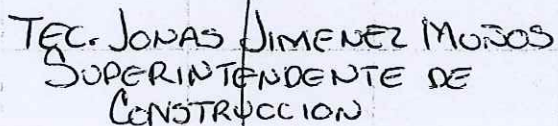 TEC. JONAS JIMENEZ MUÑOS
SUPERINTENDENTE DE
CONSTRUCCION